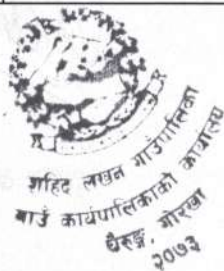 शहिद लखन गाउँपालिका
गाउँ कार्यपालिकाको कार्यालय
घैरुङ्ग, गोरखा
२०७३